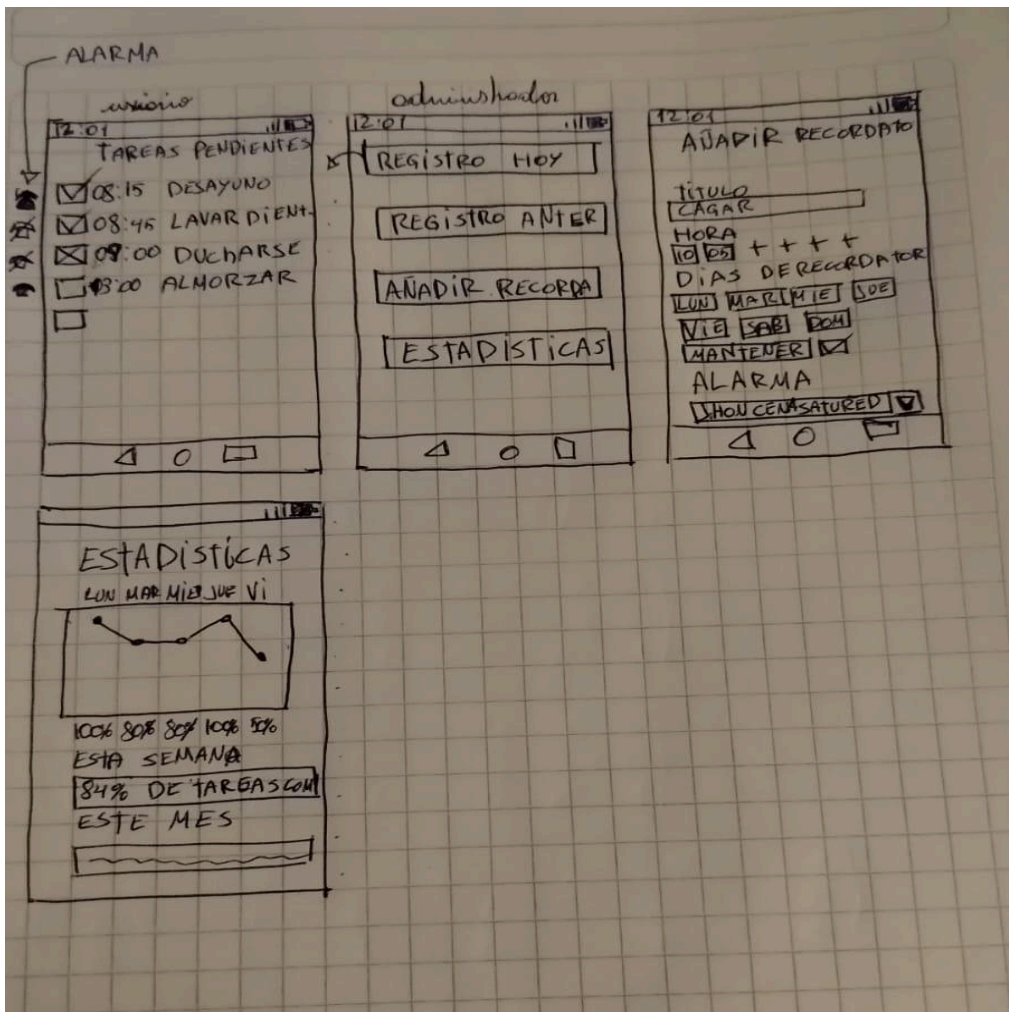 ALARMA
usuario
12:01
TAREAS PENDIENTES
08:15 DESAYUNO
08:45 LAVAR DIENT.
09:00 DUCHARSE
13:00 ALMORZAR
administrador
12:01
REGISTRO HOY
REGISTRO ANTER
AÑADIR RECORDA
ESTADISTICAS
12:01
AÑADIR RECORDATO
TITULO
CAGAR
HORA
10 05 + + + +
DIAS DE RECORDATOR
LUN MAR MIE JUE
VIE SAB DOM
MANTENER
ALARMA
JHON CENASATURED
ESTADISTICAS
LUN MAR MIE JUE VI
100% 80% 80% 100% 50%
ESTA SEMANA
84% DE TAREAS COM
ESTE MES